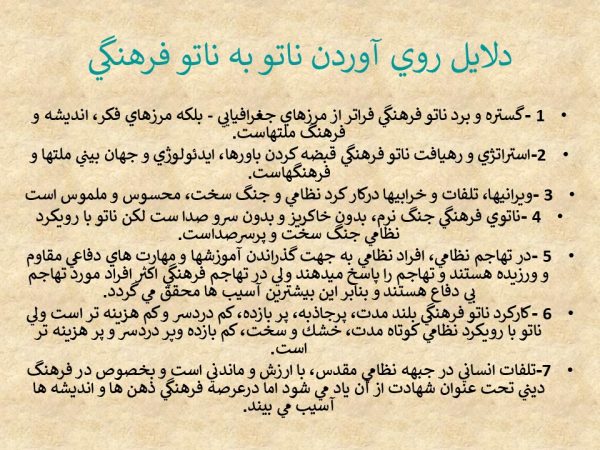 دلايل روي آوردن ناتو به ناتو فرهنگي
• 1 -گستره و برد ناتو فرهنگي فراتر از مرزهاي جغرافيايي - بلكه مرزهاي فكر، انديشه و
فرهنگ ملتهاست.
• 2-استراتژي و رهيافت ناتو فرهنگي قبضه كردن باورها، ايدئولوژي و جهان بيني ملتها و
فرهنگهاست.
• 3 -ويرانيها، تلفات و خرابيها دركار كرد نظامي و جنگ سخت، محسوس و ملموس است
• 4 -ناتوي فرهنگي جنگ نرم، بدون خاكريز و بدون سرو صدا ست لكن ناتو با رويكرد
نظامي جنگ سخت و پرسرصداست.
• 5 -در تهاجم نظامي، افراد نظامي به جهت گذراندن آموزشها و مهارت هاي دفاعي مقاوم
و ورزيده هستند و تهاجم را پاسخ ميدهند ولي در تهاجم فرهنگي اكثر افراد مورد تهاجم
بي دفاع هستند و بنابر اين بيشترين آسيب ها محقق مي گردد.
• 6 -كاركرد ناتو فرهنگي بلند مدت، پرجاذبه، پر بازده، كم دردسر و كم هزينه تر است ولي
ناتو با رويكرد نظامي كوتاه مدت، خشك و سخت، كم بازده وپر دردسر و پر هزينه تر
است.
• 7-تلفات انساني در جبهه نظامي مقدس، با ارزش و ماندني است و بخصوص در فرهنگ
ديني تحت عنوان شهادت از آن ياد مي شود اما درعرصه فرهنگي ذهن ها و انديشه ها
آسيب مي بيند.